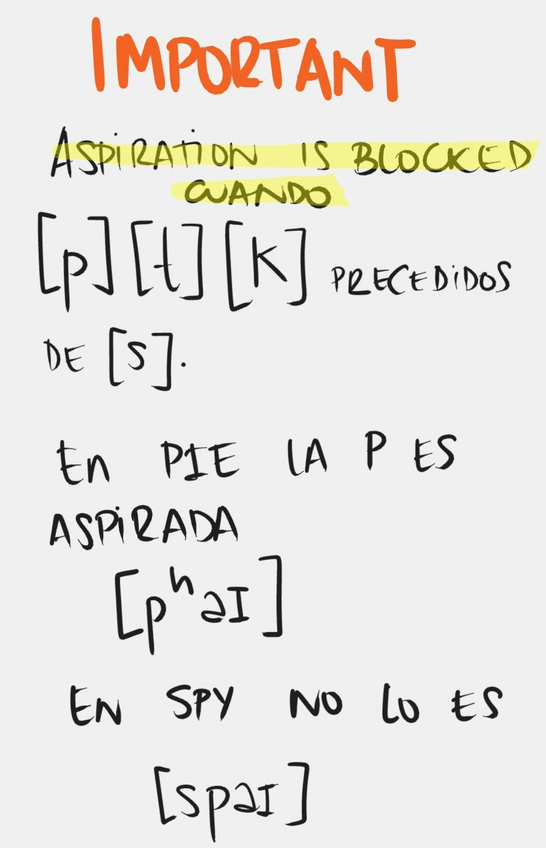 IMPORTANT
ASPIRATION IS BLOCKED
CUANDO
[p] [t] [K] PRECEDIDOS
DE [s].
En PIE LA P ES
ASPIRADA
[pʰaI]
EN SPY NO LO ES
[spaI]